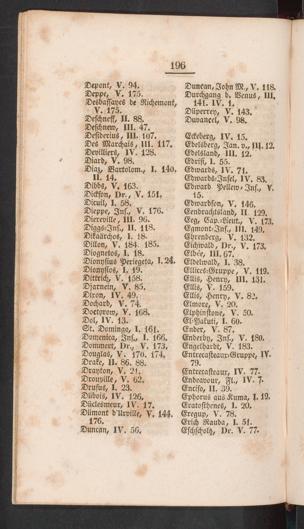 196
Depont, V. 94.
Deppe, V. 175.
Desbassayes de Richemont,
V. 175.
Deschneff, II. 88.
Deschnew, III. 47.
Desiderius, III. 107.
Des Marchais, III. 117.
Devilliers, IV. 128.
Diard, V. 98.
Diaz, Bartolom., I. 140.
II. 14.
Dibbs, V. 163.
Dickson, Dr., V. 151.
Dicuil, I. 58.
Dieppe, Ins., V. 176.
Diereville, III. 96.
Diggs-Ins., II. 118.
Dikäarchos, I. 18.
Dillon, V. 184. 185.
Diognetos, I. 18.
Dionysius Periegeta, I. 24.
Dionysios, I. 19.
Dittrich, V. 158.
Djarnein, V. 85.
Dixon, IV. 49.
Dochard, V. 74.
Doctorow, V. 168.
Dol, IV. 13.
St. Domingo, I. 161.
Domenica, Ins., I. 166.
Dommert, Dr., V. 173.
Douglas, V. 170. 174.
Drake, II. 86. 88.
Drayton, V. 21.
Drouville, V. 62.
Drusus, I. 23.
Dubois, IV. 126.
Düclesmeur, IV. 17.
Dümont d'Urville, V. 144.
176.
Duncan, IV. 56.
Duncan, John M., V. 118.
Durchgang d. Venus, III.
141. IV. 1.
Düperrey, V. 143.
Duvancel, V. 98.
Eckeberg, IV. 15.
Edelsberg, Jan. v., III. 12.
Edelsland, III. 12.
Edrisi, I. 55.
Edwards, IV. 71.
Edwards-Insel, IV. 83.
Edward Pellew-Ins., V.
15.
Edwardson, V. 146.
Eendrachtsland, II. 129.
Eeg, Cap.-Lieut., V. 173.
Egmont-Ins., III. 149.
Ehrenberg, V. 132.
Eichwald, Dr., V. 173.
Elbée, III. 67.
Eldelwalh, I. 38.
Ellices-Gruppe, V. 119.
Ellis, Henry, III. 131.
Ellis, V. 159.
Ellis, Henry, V. 82.
Elmore, V. 20.
Elphinstone, V. 50.
El-Yakuti, I. 60.
Ender, V. 87.
Enderby, Ins., V. 180.
Engelhardt, V. 183.
Entrecasteaux-Gruppe, IV.
79.
Entrecasteaux, IV. 77.
Endeavour, Fl., IV. 7.
Enciso, II. 39.
Ephorus aus Kuma, I. 12.
Eratosthenes, I. 20.
Eregup, V. 78.
Erich Rauda, I. 51.
Eschscholtz, Dr. V. 77.